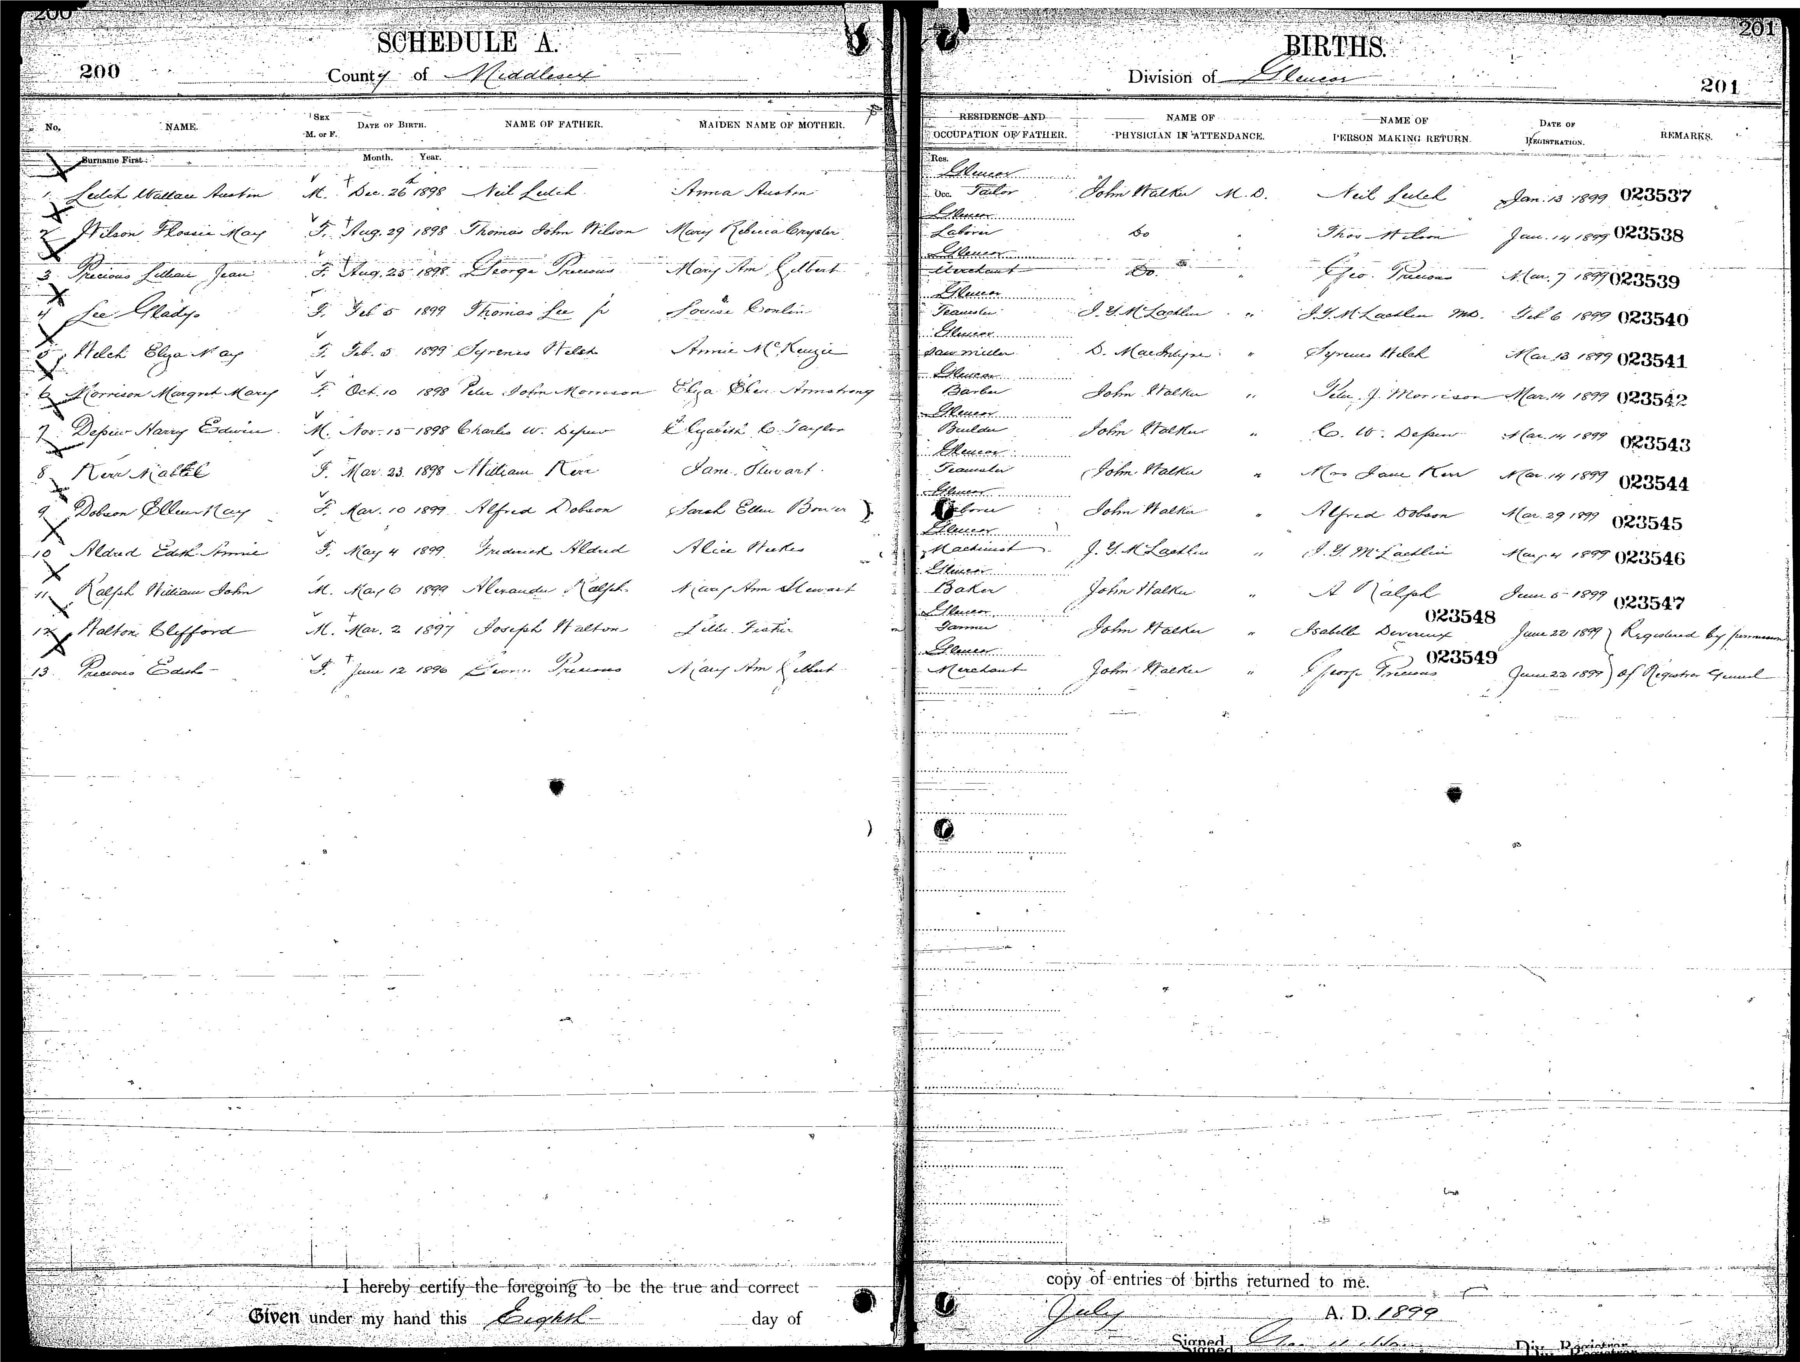 200
SCHEDULE A.
200
County of Middlesex
No. NAME. Sex M. or F. DATE OF BIRTH. NAME OF FATHER. MAIDEN NAME OF MOTHER.
Surname First. Month. Year.
1 Leitch Wallace Austin M. Dec. 26th 1898 Neil Leitch Anna Austin
2 Wilson Flossie May F. Aug. 29 1898 Thomas John Wilson Mary Rebecca Crysler
3 Precious Lillian Jean F. Aug. 25 1898 George Precious Mary Am Gilbert
4 Lee Gladys F. Feb 5 1899 Thomas Lee jr Louise Conlin
5 Welch Eliza May F. Feb. 5 1899 Syrenes Welch Annie McKenzie
6 Morrison Margret Mary F. Oct. 10 1898 Peter John Morrison Eliza Ellen Armstrong
7 Depew Harry Edwin M. Nov. 15 1898 Charles W. Depew Elizabeth C. Taylor
8 Kerr Mabel F. Mar. 23. 1898 William Kerr Jane Stewart
9 Dobson Ellen May F. Mar. 10 1899 Alfred Dobson Sarah Ellen
10 Aldred Edith Annie F. May 4 1899 Frederick Aldred Alice Weekes
11 Ralph William John M. May 6 1899 Alexander Ralph Mary Ann Stewart
12 Walton Clifford M. Mar. 2 1897 Joseph Walton Lillie Fisher
13 Precious Edith F. June 12 1896 Precious Mary Am Gilbert
I hereby certify the foregoing to be the true and correct
Given under my hand this Eighth day of
201
BIRTHS.
Division of Glencoe
201
RESIDENCE AND OCCUPATION OF FATHER. NAME OF PHYSICIAN IN ATTENDANCE. NAME OF PERSON MAKING RETURN. DATE OF REGISTRATION. REMARKS.
Res. Glencoe
Occ. Tailor John Walker M.D. Neil Leitch Jan. 13 1899 023537
Glencoe
Laborer Do " Thos Wilson Jan. 14 1899 023538
Glencoe
Merchant Do. " Geo. Precious Mar. 7 1899 023539
Glencoe
Teamster J. Y. McLachlin " J. Y. McLachlin MD. Feb 6 1899 023540
Glencoe
Saw miller D. MacIntyre " Syrenes Welch Mar 13 1899 023541
Glencoe
Barber John Walker " Peter J. Morrison Mar. 14 1899 023542
Glencoe
Builder John Walker " C. W. Depew Mar. 14 1899 023543
Glencoe
Teamster John Walker " Mrs Jane Kerr Mar 14 1899 023544
Glencoe
Laborer John Walker " Alfred Dobson Mar. 29 1899 023545
Glencoe
Machinist J. Y. McLachlin " J. Y. McLachlin May 4 1899 023546
Glencoe
Baker John Walker " A Ralph June 5 1899 023547
Glencoe 023548
Farmer John Walker " Isabella Devereux June 22 1899 } Registered by permission
Glencoe 023549
Merchant John Walker " George Precious June 22 1899 } of Registrar General
copy of entries of births returned to me.
July A. D. 1899
Signed Div. Registrar